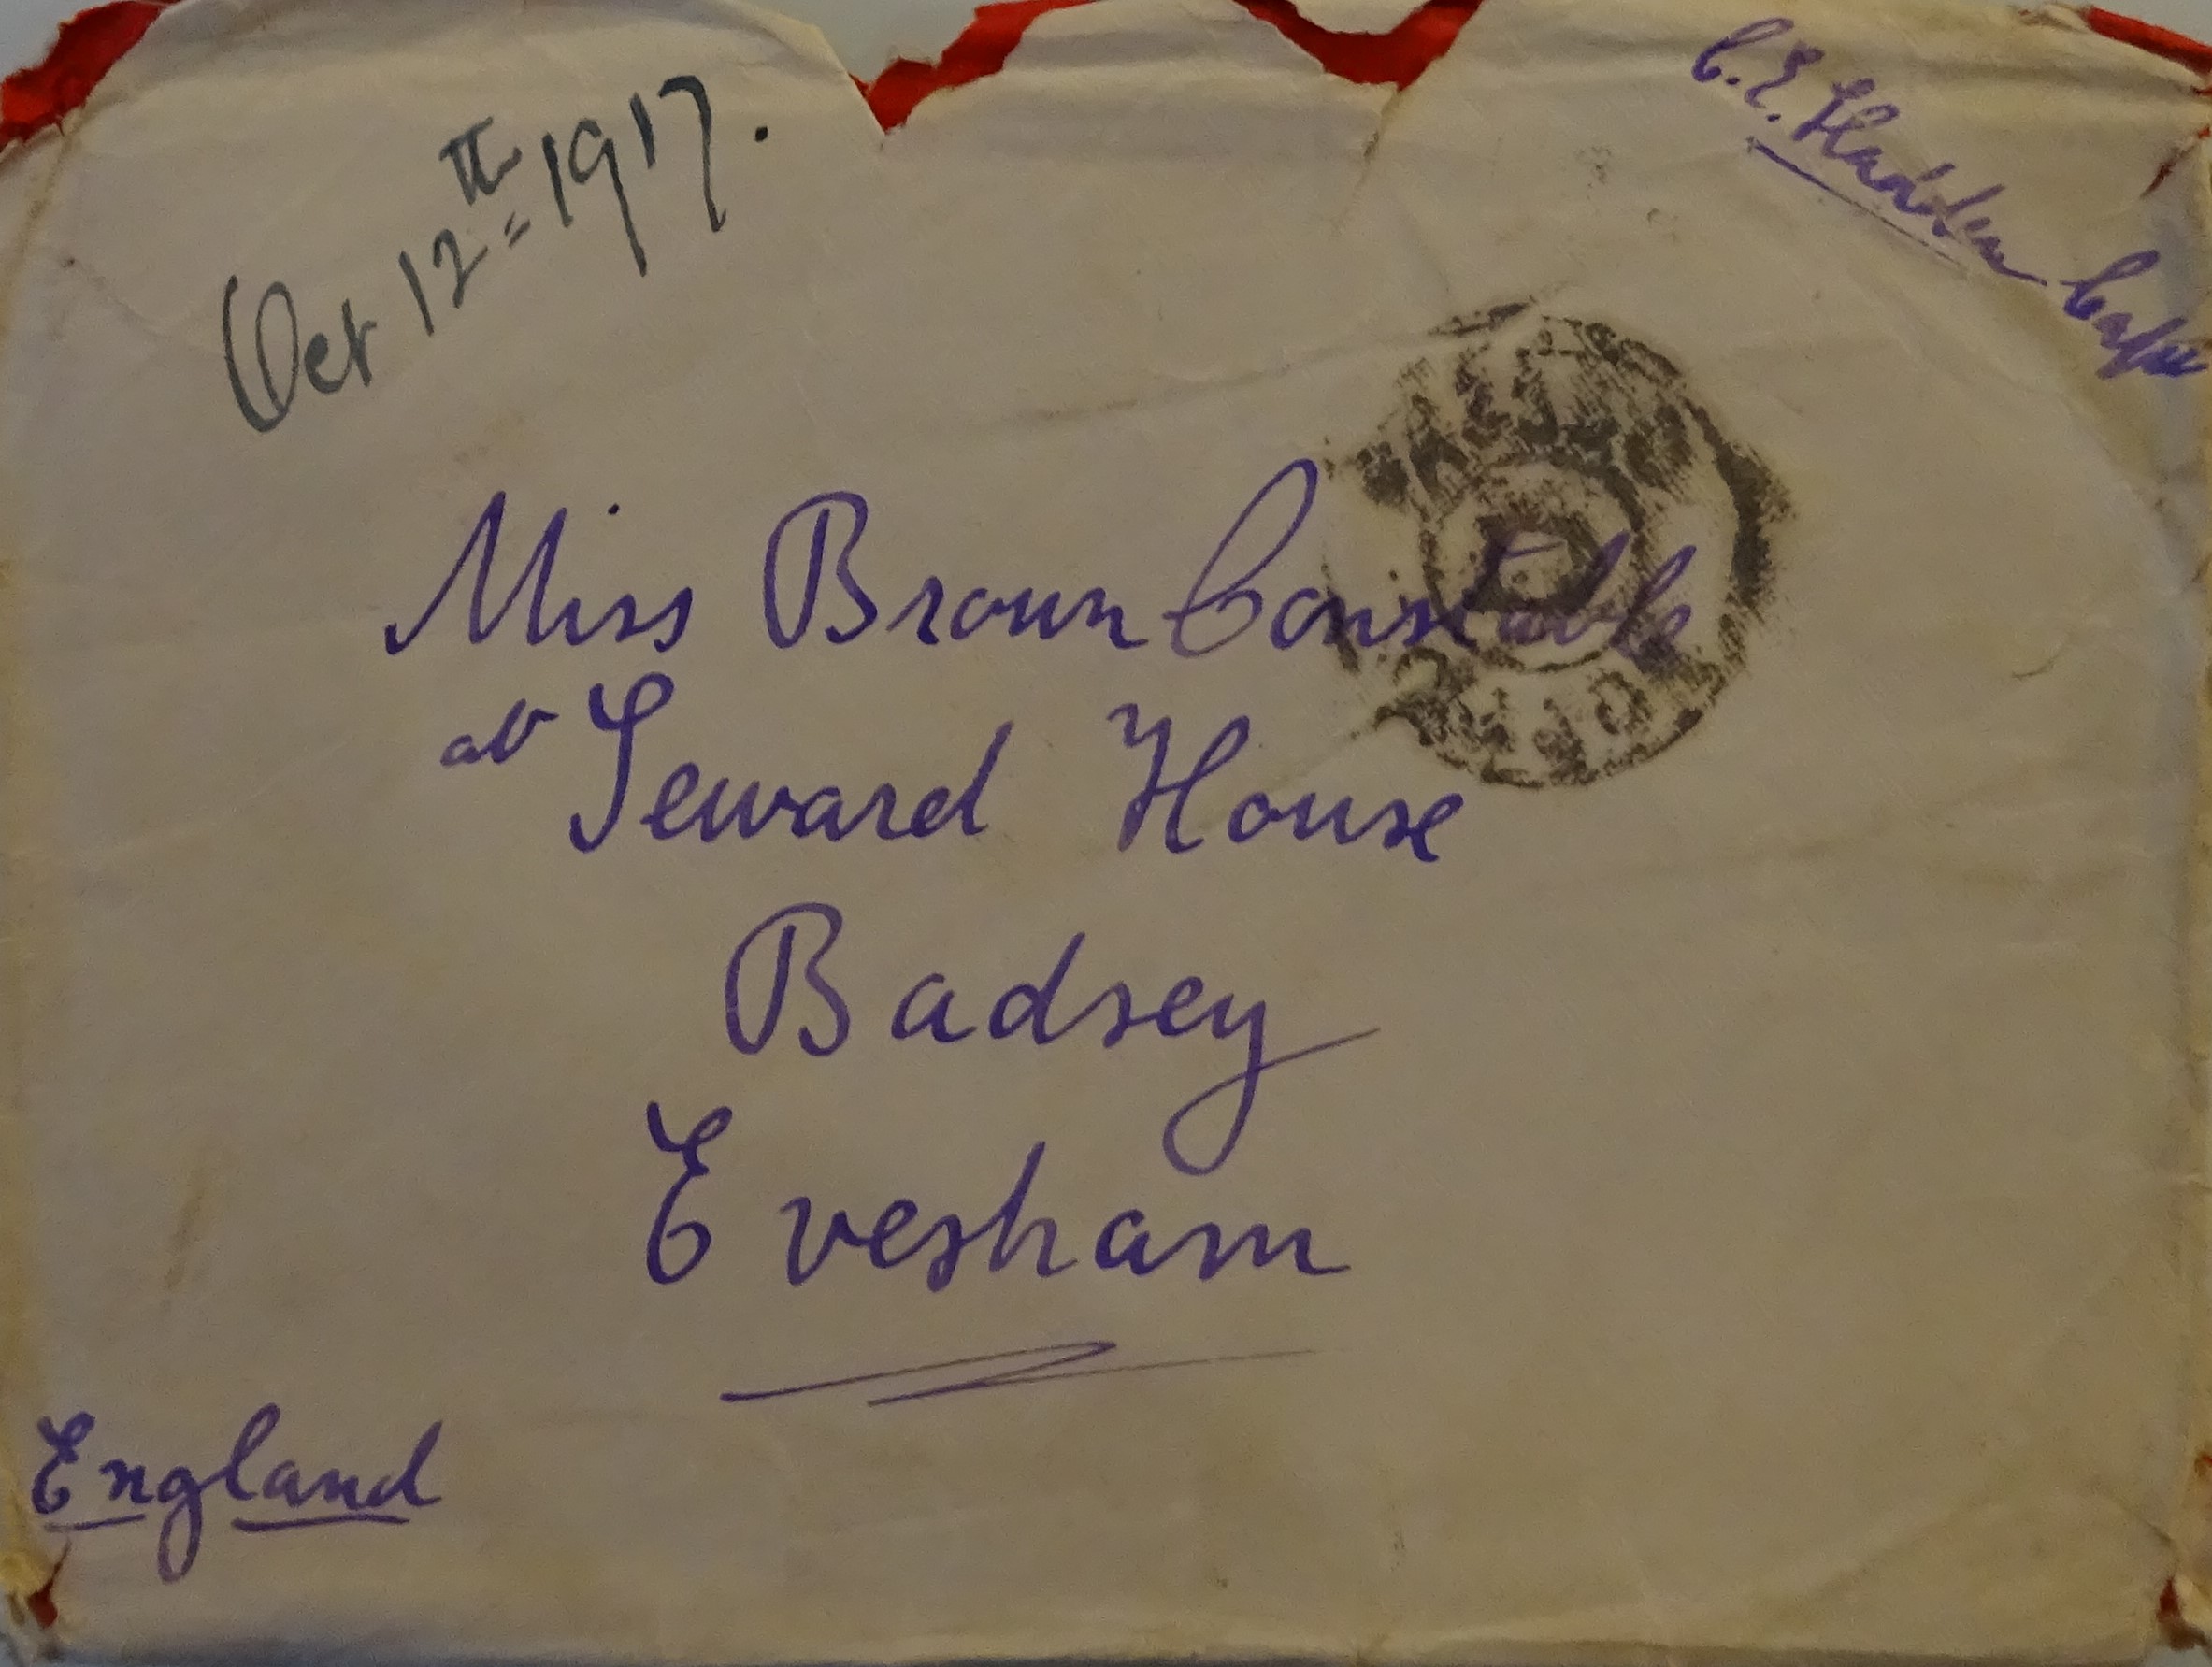 Oct 12th 1917.
C. E. Hadden Capt
Miss Brown Constable
at Seward House
Badsey
Evesham
England